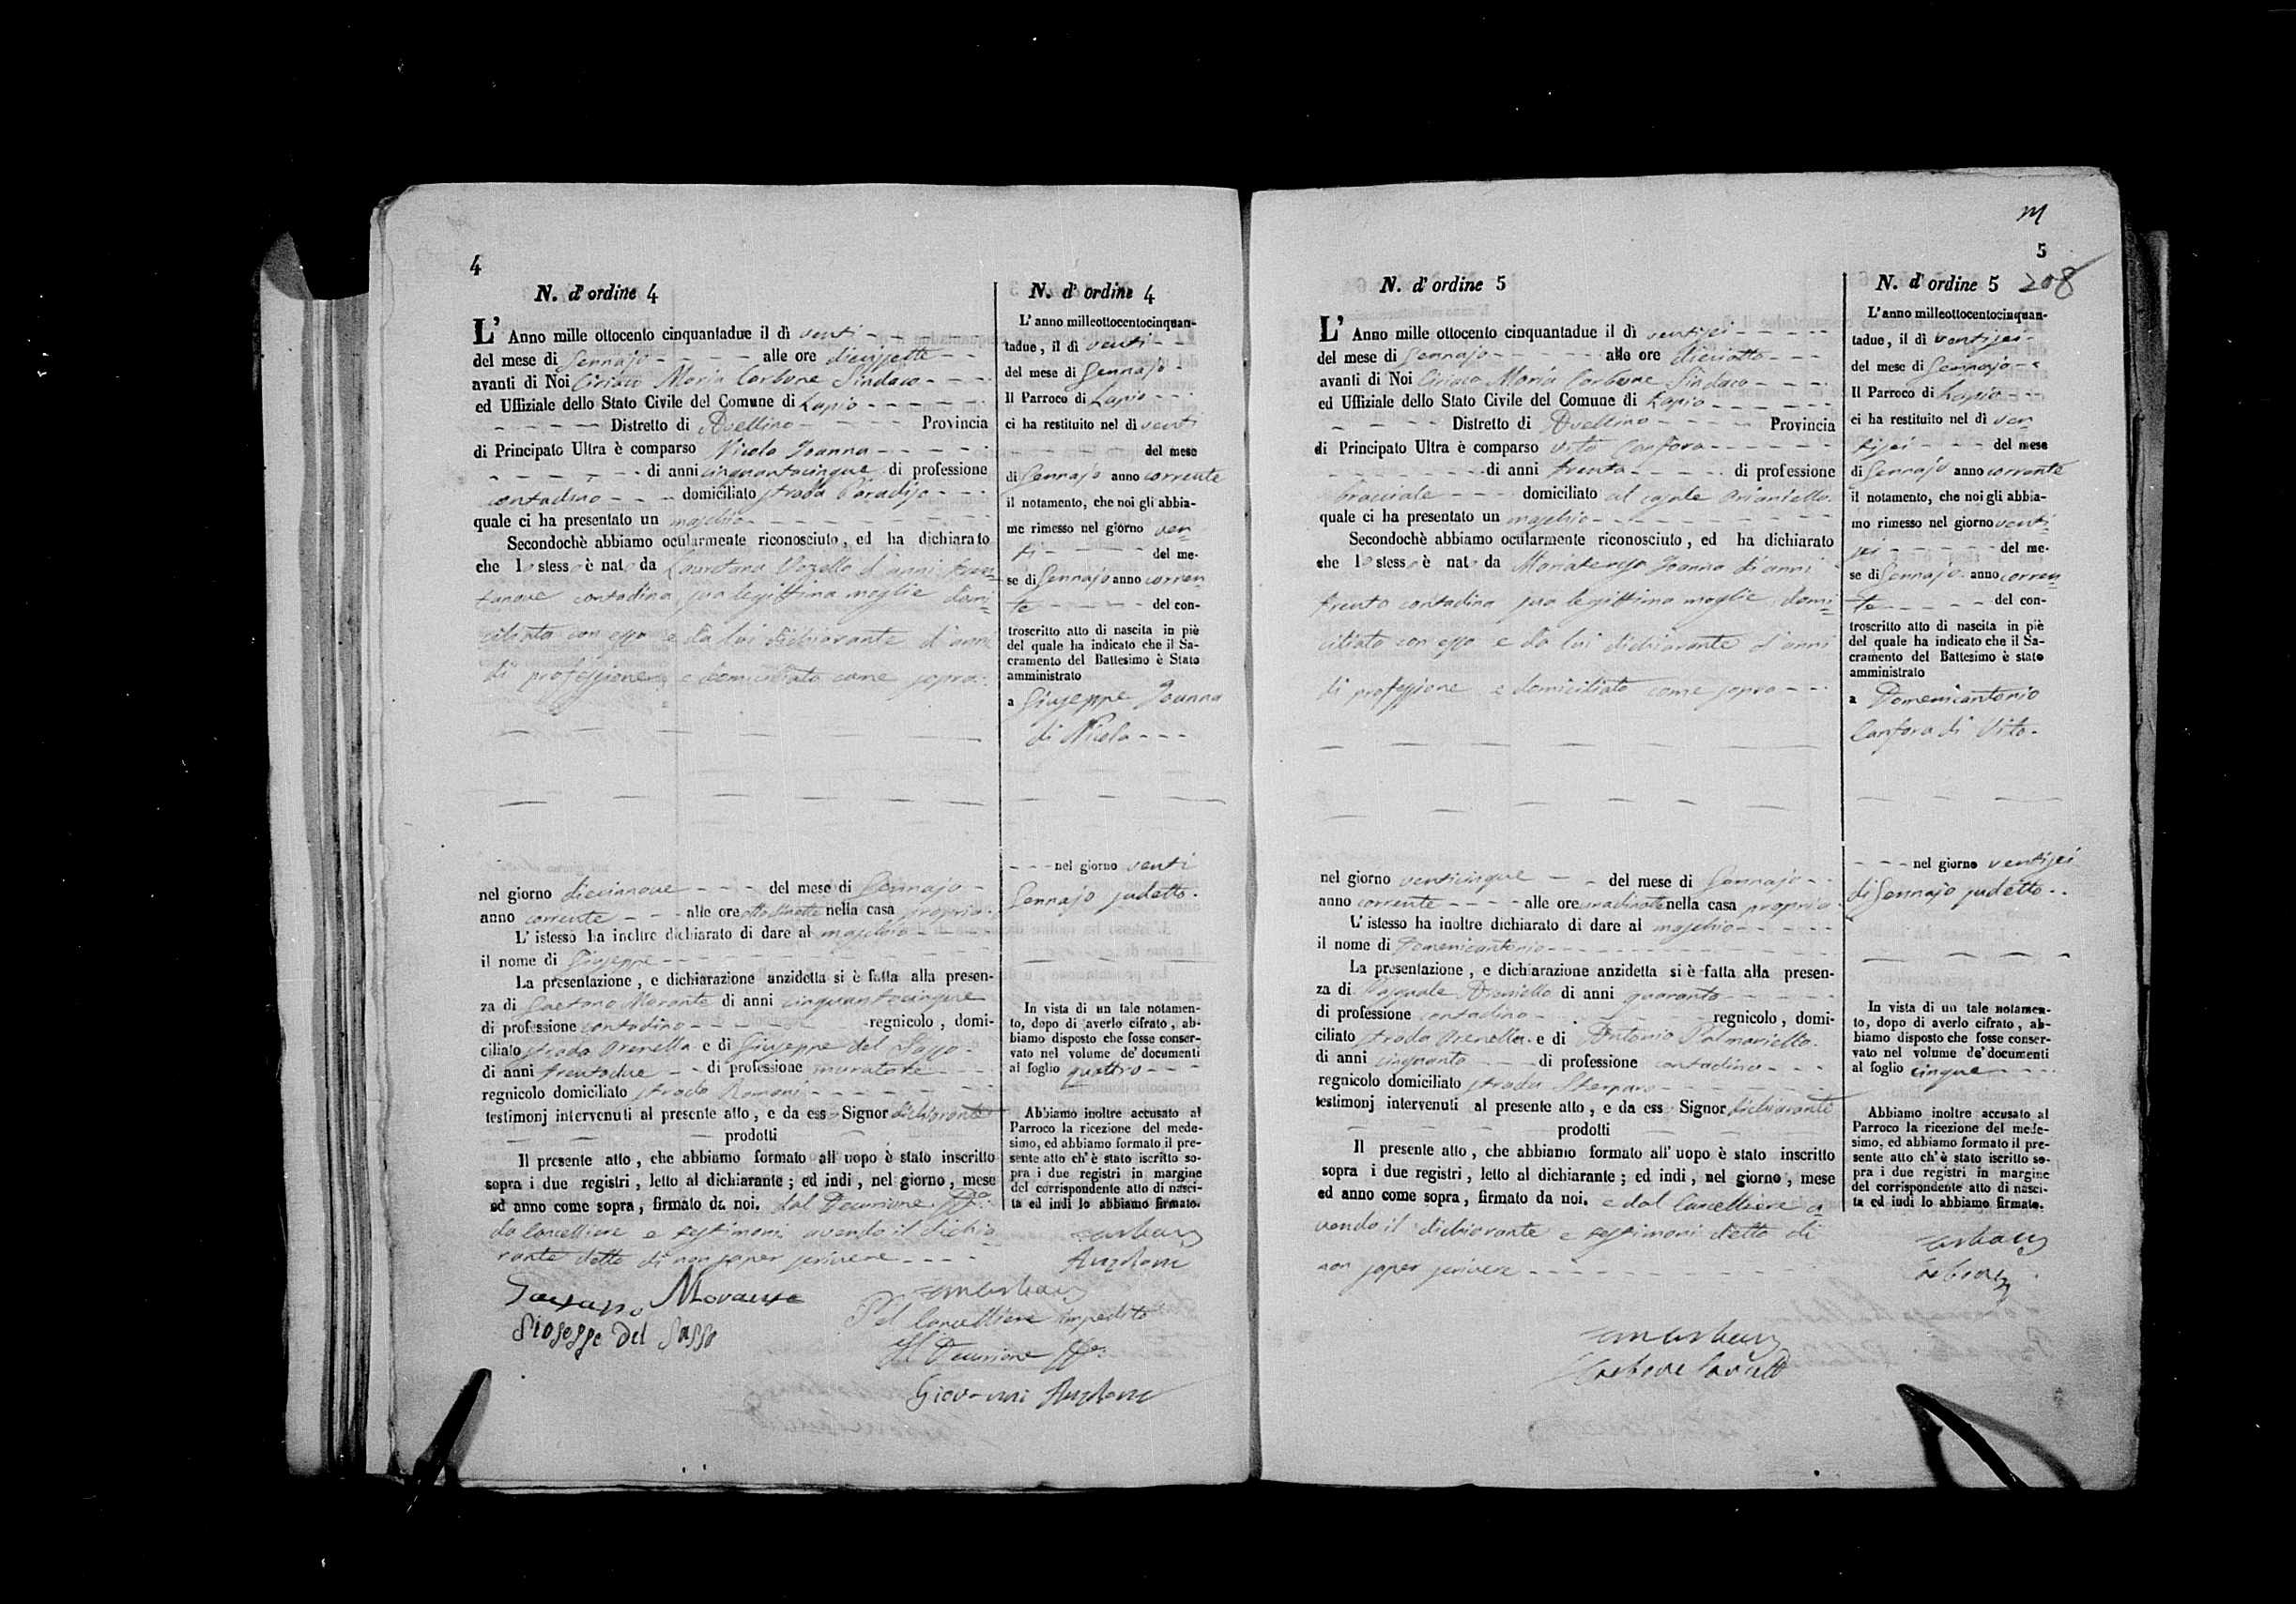 4
N. d' ordine 4
L' Anno mille ottocento cinquantadue il dì venti
del mese di Gennajo alle ore diecissette
avanti di Noi Ciriaco Maria Carbone Sindaco
ed Uffiziale dello Stato Civile del Comune di Lapio
Distretto di Avellino Provincia
di Principato Ultra è comparso Nicola Joanna
di anni cinquantacinque di professione
contadino domiciliato strada Paradiso
quale ci ha presentato un maschio
Secondochè abbiamo ocularmente riconosciuto, ed ha dichiarato
che lo stesso è nato da Lauretana Vozella d'anni tren=
tanove contadina sua legittima moglie domi=
ciliata con esso e da lui dichiarante d'anni
di professione e domiciliato come sopra
nel giorno diecinnove del mese di Gennajo
anno corrente alle ore otto di notte nella casa propria
L' istesso ha inoltre dichiarato di dare al maschio
il nome di Giuseppe
La presentazione, e dichiarazione anzidetta si è fatta alla presen-
za di Gaetano Morante di anni cinquantacinque
di professione contadino regnicolo, domi-
ciliato strada Arenella e di Giuseppe del Sasso
di anni trentadue di professione muratore
regnicolo domiciliato strada Romani
testimonj intervenuti al presente atto, e da ess Signor dichiarante
prodotti
Il presente atto, che abbiamo formato all' uopo è stato inscritto
sopra i due registri, letto al dichiarante; ed indi, nel giorno, mese
ed anno come sopra, firmato da noi. dal Decurione
da Cancelliere e testimoni avendo il dichia
rante detto di non saper scrivere
Gaetano Morante
Gioseppe Del Sasso
Pel Cancelliere impedito
Il Decurione
Giovanni Anzalone
N. d' ordine 4
L' anno milleottocentocinquan-
tadue, il dì venti
del mese di Gennajo
Il Parroco di Lapio
ci ha restituito nel dì venti
del mese
di Gennajo anno corrente
il notamento, che noi gli abbia-
mo rimesso nel giorno ven
ti del me-
se di Gennajo anno corren
te del con-
troscritto atto di nascita in piè
del quale ha indicato che il Sa-
cramento del Battesimo è Stato
amministrato
a Giuseppe Joanna
di Nicola
nel giorno venti
Gennajo sudetto
In vista di un tale notamen-
to, dopo di averlo cifrato, ab-
biamo disposto che fosse conser-
vato nel volume de' documenti
al foglio quattro
Abbiamo inoltre accusato al
Parroco la ricezione del mede-
simo, ed abbiamo formato il pre-
sente atto ch' è stato iscritto so-
pra i due registri in margine
del corrispondente atto di nasci-
ta ed indi lo abbiamo firmato.
Anzalone
5
208
N. d' ordine 5
L' Anno mille ottocento cinquantadue il dì ventisei
del mese di Gennajo alle ore dieciotto
avanti di Noi Ciriaco Maria Carbone Sindaco
ed Uffiziale dello Stato Civile del Comune di Lapio
Distretto di Avellino Provincia
di Principato Ultra è comparso Vito Canfora
di anni trenta di professione
bracciale domiciliato al casale Arianiello
quale ci ha presentato un maschio
Secondochè abbiamo ocularmente riconosciuto, ed ha dichiarato
che lo stesso è nato da Mariateresa Joanna di anni
trenta contadina sua legittima moglie domi=
ciliata con esso e da lui dichiarante d'anni
di professione e domiciliato come sopra
nel giorno venticinque del mese di Gennajo
anno corrente alle ore una di notte nella casa propria
L' istesso ha inoltre dichiarato di dare al maschio
il nome di Domenicantonio
La presentazione, e dichiarazione anzidetta si è fatta alla presen-
za di Pasquale di anni quaranta
di professione contadino regnicolo, domi-
ciliato strada Arenella e di Antonio Palmariello
di anni cinquanta di professione contadino
regnicolo domiciliato strada Sterparo
testimonj intervenuti al presente atto, e da ess Signor dichiarante
prodotti
Il presente atto, che abbiamo formato all' uopo è stato inscritto
sopra i due registri, letto al dichiarante; ed indi, nel giorno, mese
ed anno come sopra, firmato da noi. e dal Cancelliere a=
vendo il dichiarante e testimoni detto di
non saper scrivere
Carbone
N. d' ordine 5
L' anno milleottocentocinquan-
tadue, il dì ventisei
del mese di Gennajo
Il Parroco di Lapio
ci ha restituito nel dì ven
tisei del mese
di Gennajo anno corrente
il notamento, che noi gli abbia-
mo rimesso nel giorno venti
sei del me-
se di Gennajo anno corren
te del con-
troscritto atto di nascita in piè
del quale ha indicato che il Sa-
cramento del Battesimo è stato
amministrato
a Domenicantonio
Canfora di Vito
nel giorno ventisei
di Gennajo sudetto
In vista di un tale notamen-
to, dopo di averlo cifrato, ab-
biamo disposto che fosse conser-
vato nel volume de' documenti
al foglio cinque
Abbiamo inoltre accusato al
Parroco la ricezione del mede-
simo, ed abbiamo formato il pre-
sente atto ch' è stato iscritto so-
pra i due registri in margine
del corrispondente atto di nasci-
ta ed indi lo abbiamo firmato.
Carbone